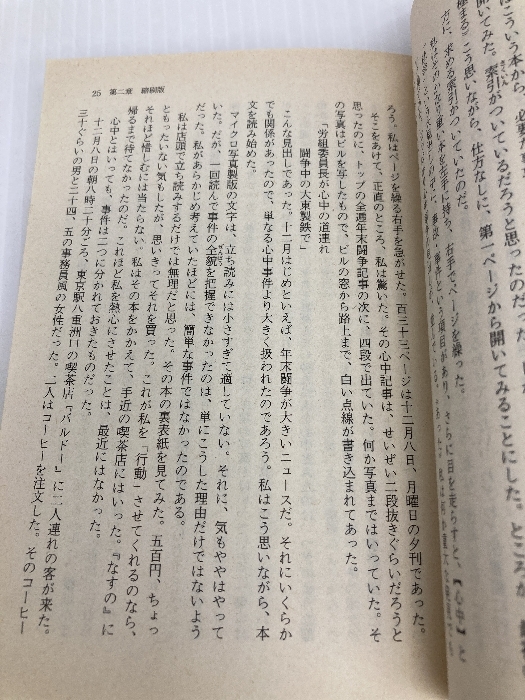 はこういう本から、
開いてみた。索引がついているだろうと思ったのだっ
極まる）こう思いながら、仕方なしに、第一ページから開いてみることにした。ところが
だ、求める索引がついていたのだ。
右手でページを繰った。
25 第二章 縮刷版
ろう。私はページを繰る右手を急がせた。百三十三ページは十二月八日、月曜日の夕刊であった。
そこをあけて、正直のところ、私は驚いた。その心中記事は、せいぜい二段抜きぐらいだろうと
思ったのに、トップの全逓年末闘争記事の次に、四段で出ていた。何か写真まではいっていた。そ
の写真はビルを写したもので、ビルの窓から路上まで、白い点線が書き込まれてあった。
「労組委員長が心中の道連れ
闘争中の大東製鉄で」
こんな見出しであった。十二月はじめといえば、年末闘争が大きいニュースだ。それにいくらか
でも関係があったので、単なる心中事件より大きく扱われたのであろう。私はこう思いながら、本
文を読み始めた。
マイクロ写真製版の文字は、立ち読みには小さすぎて適していない。それに、気もややはやって
いた。だが、一回読んで事件の全貌を把握できなかったのは、単にこうした理由だけではないよう
だった。私があらかじめ考えていたほどには、簡単な事件ではなかったのである。
私は店頭で立ち読みするだけでは無理だと思った。その本の裏表紙を見てみた。五百円、ちょっ
ともったいない気もしたが、思いきってそれを買った。これが私を「行動」させてくれるのなら、
それほど惜しむには当たらない。私はその本をかかえて、手近の喫茶店にはいった。『なすの』に
帰るまで待てなかったのだ。これほど私を熱心にさせたことは、最近にはなかった。
心中とはいっても、事件は二つに分かれておきたものだった。
十二月八日の朝八時二十分ごろ、東京駅八重洲口の喫茶店『バルドー』に二人連れの客が来た。
三十ぐらいの男と二十四、五の事務員風の女性だった。二人はコーヒーを注文した。そのコーヒー